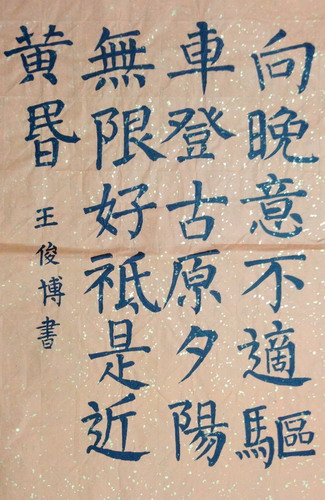 向晚意不適驅
車登古原夕陽
無限好祗是近
黃昬
王俊博書